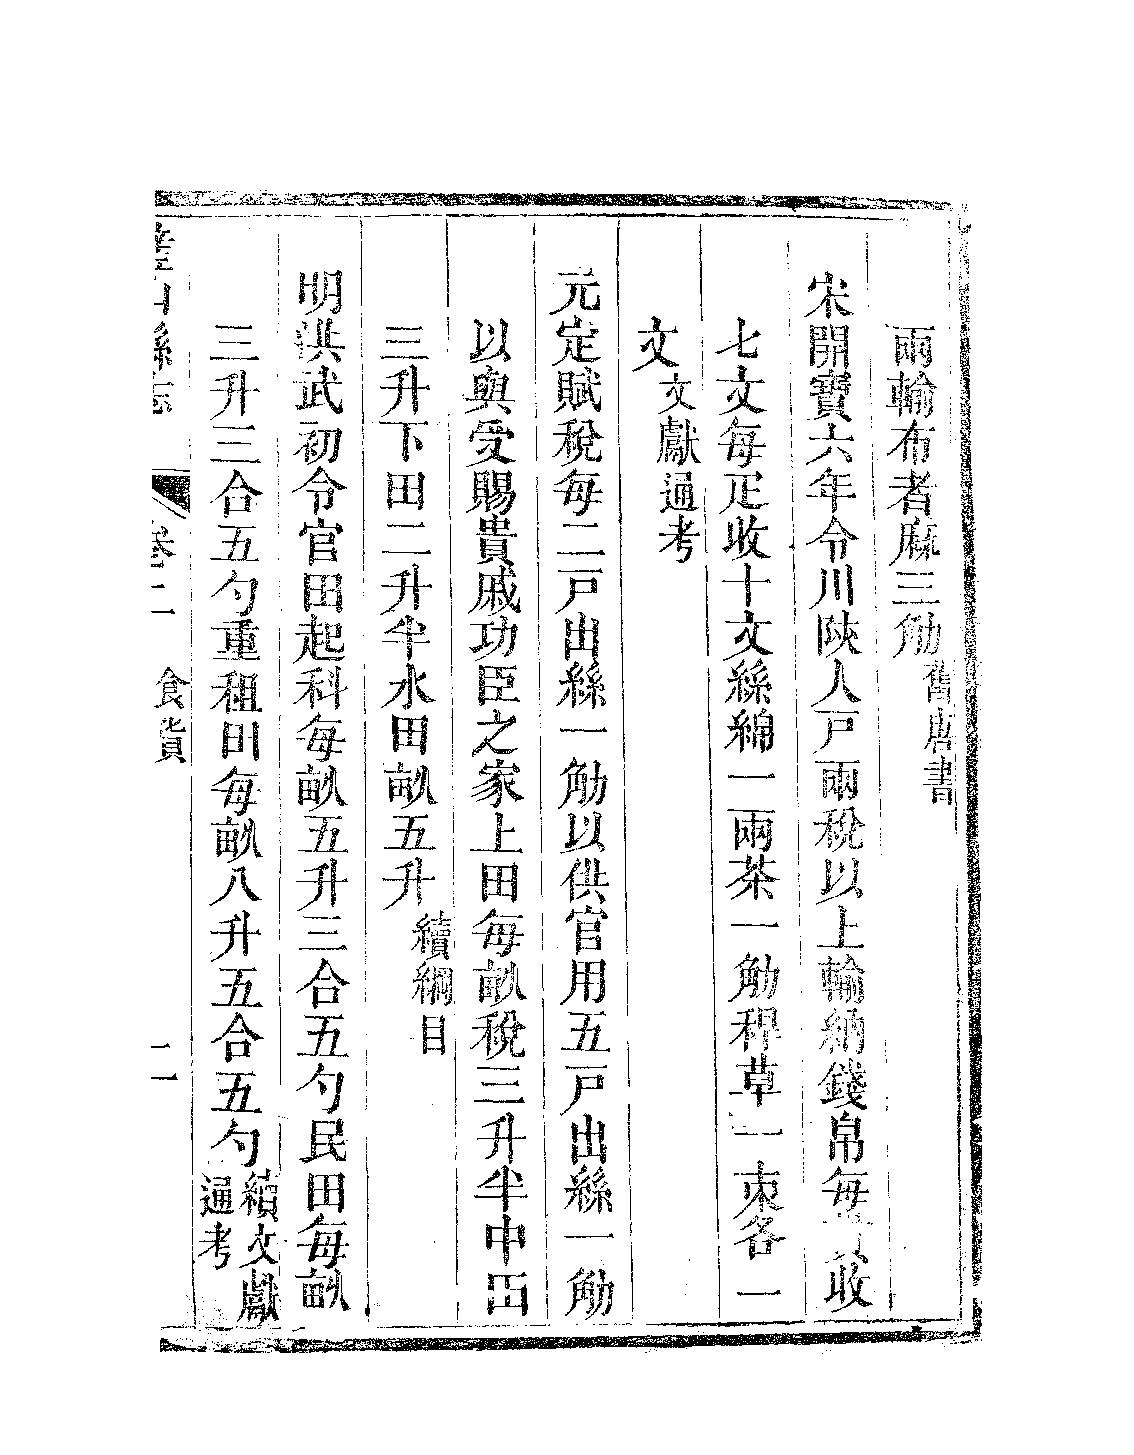 兩輸布者麻三觔舊唐書
宋開寶六年令川陝人戸兩稅以上輸納錢帛每貫收
七文每疋收十文絲綿一兩茶一觔稈草一束各一
文文獻通考
元定賦稅每二戸出絲一觔以供官用五戸出絲一觔
以與受賜貴戚功臣之家上田每畝稅三升半中田
三升下田二升半水田畝五升續綱目
明洪武初令官田起科每畝五升三合五勺民田每畝
三升三合五勺重租田每畝八升五合五勺續文獻通考
璧山縣志 卷二 食貨 二